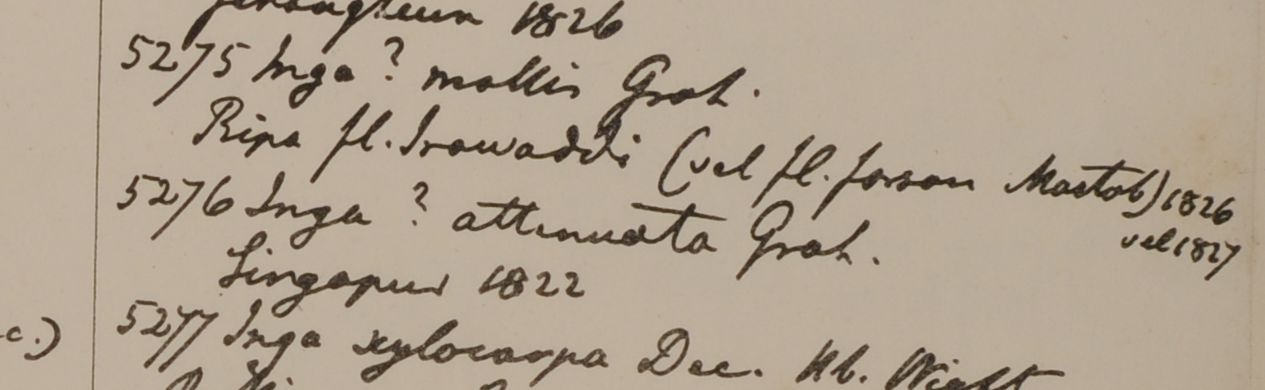 1826
5275 Inga ? mollis Grah.
Ripa fl. Irawaddi (vel fl. forsan Martab) 1826
vel 1827
5276 Inga ? attenuata Grah.
Singapur 1822
c.) 5277 Inga xylocarpa Dec. Hb. Wight